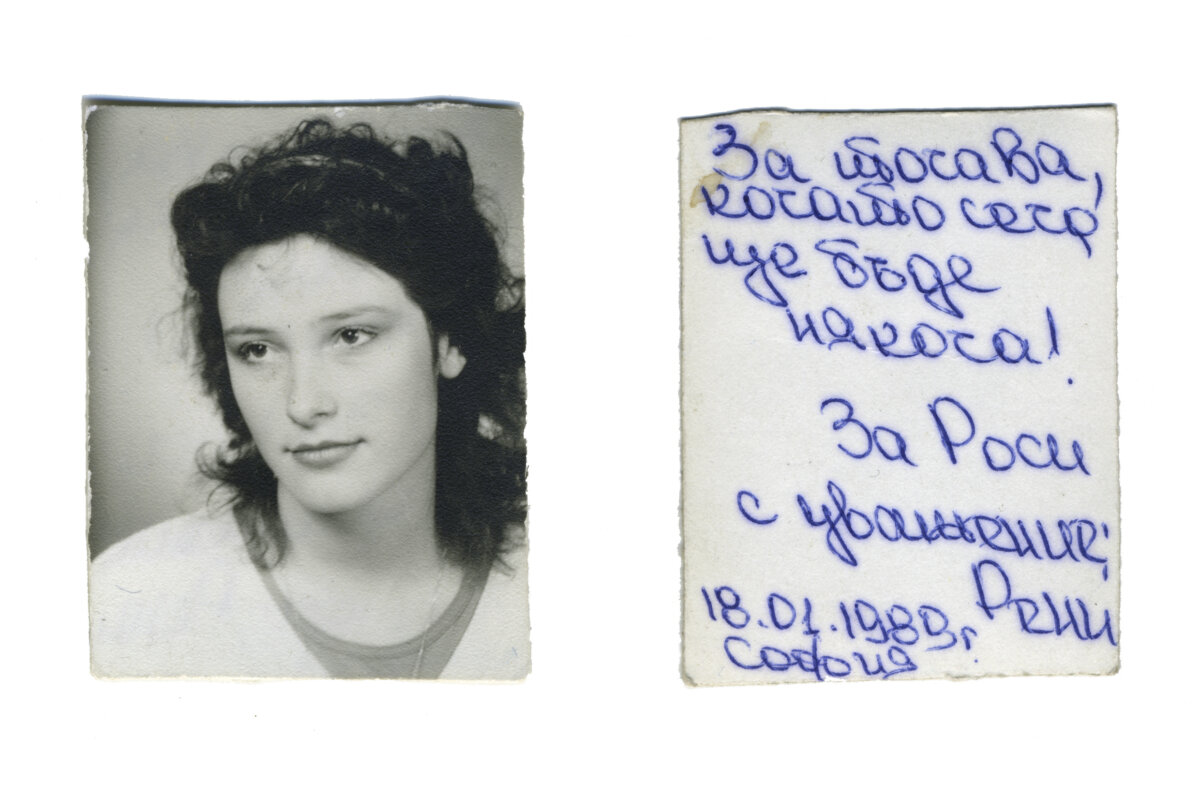 За тогава,
когато сега
ще бъде
някога!
За Роси
с уважение:
Рени
18.01.1989г.
София